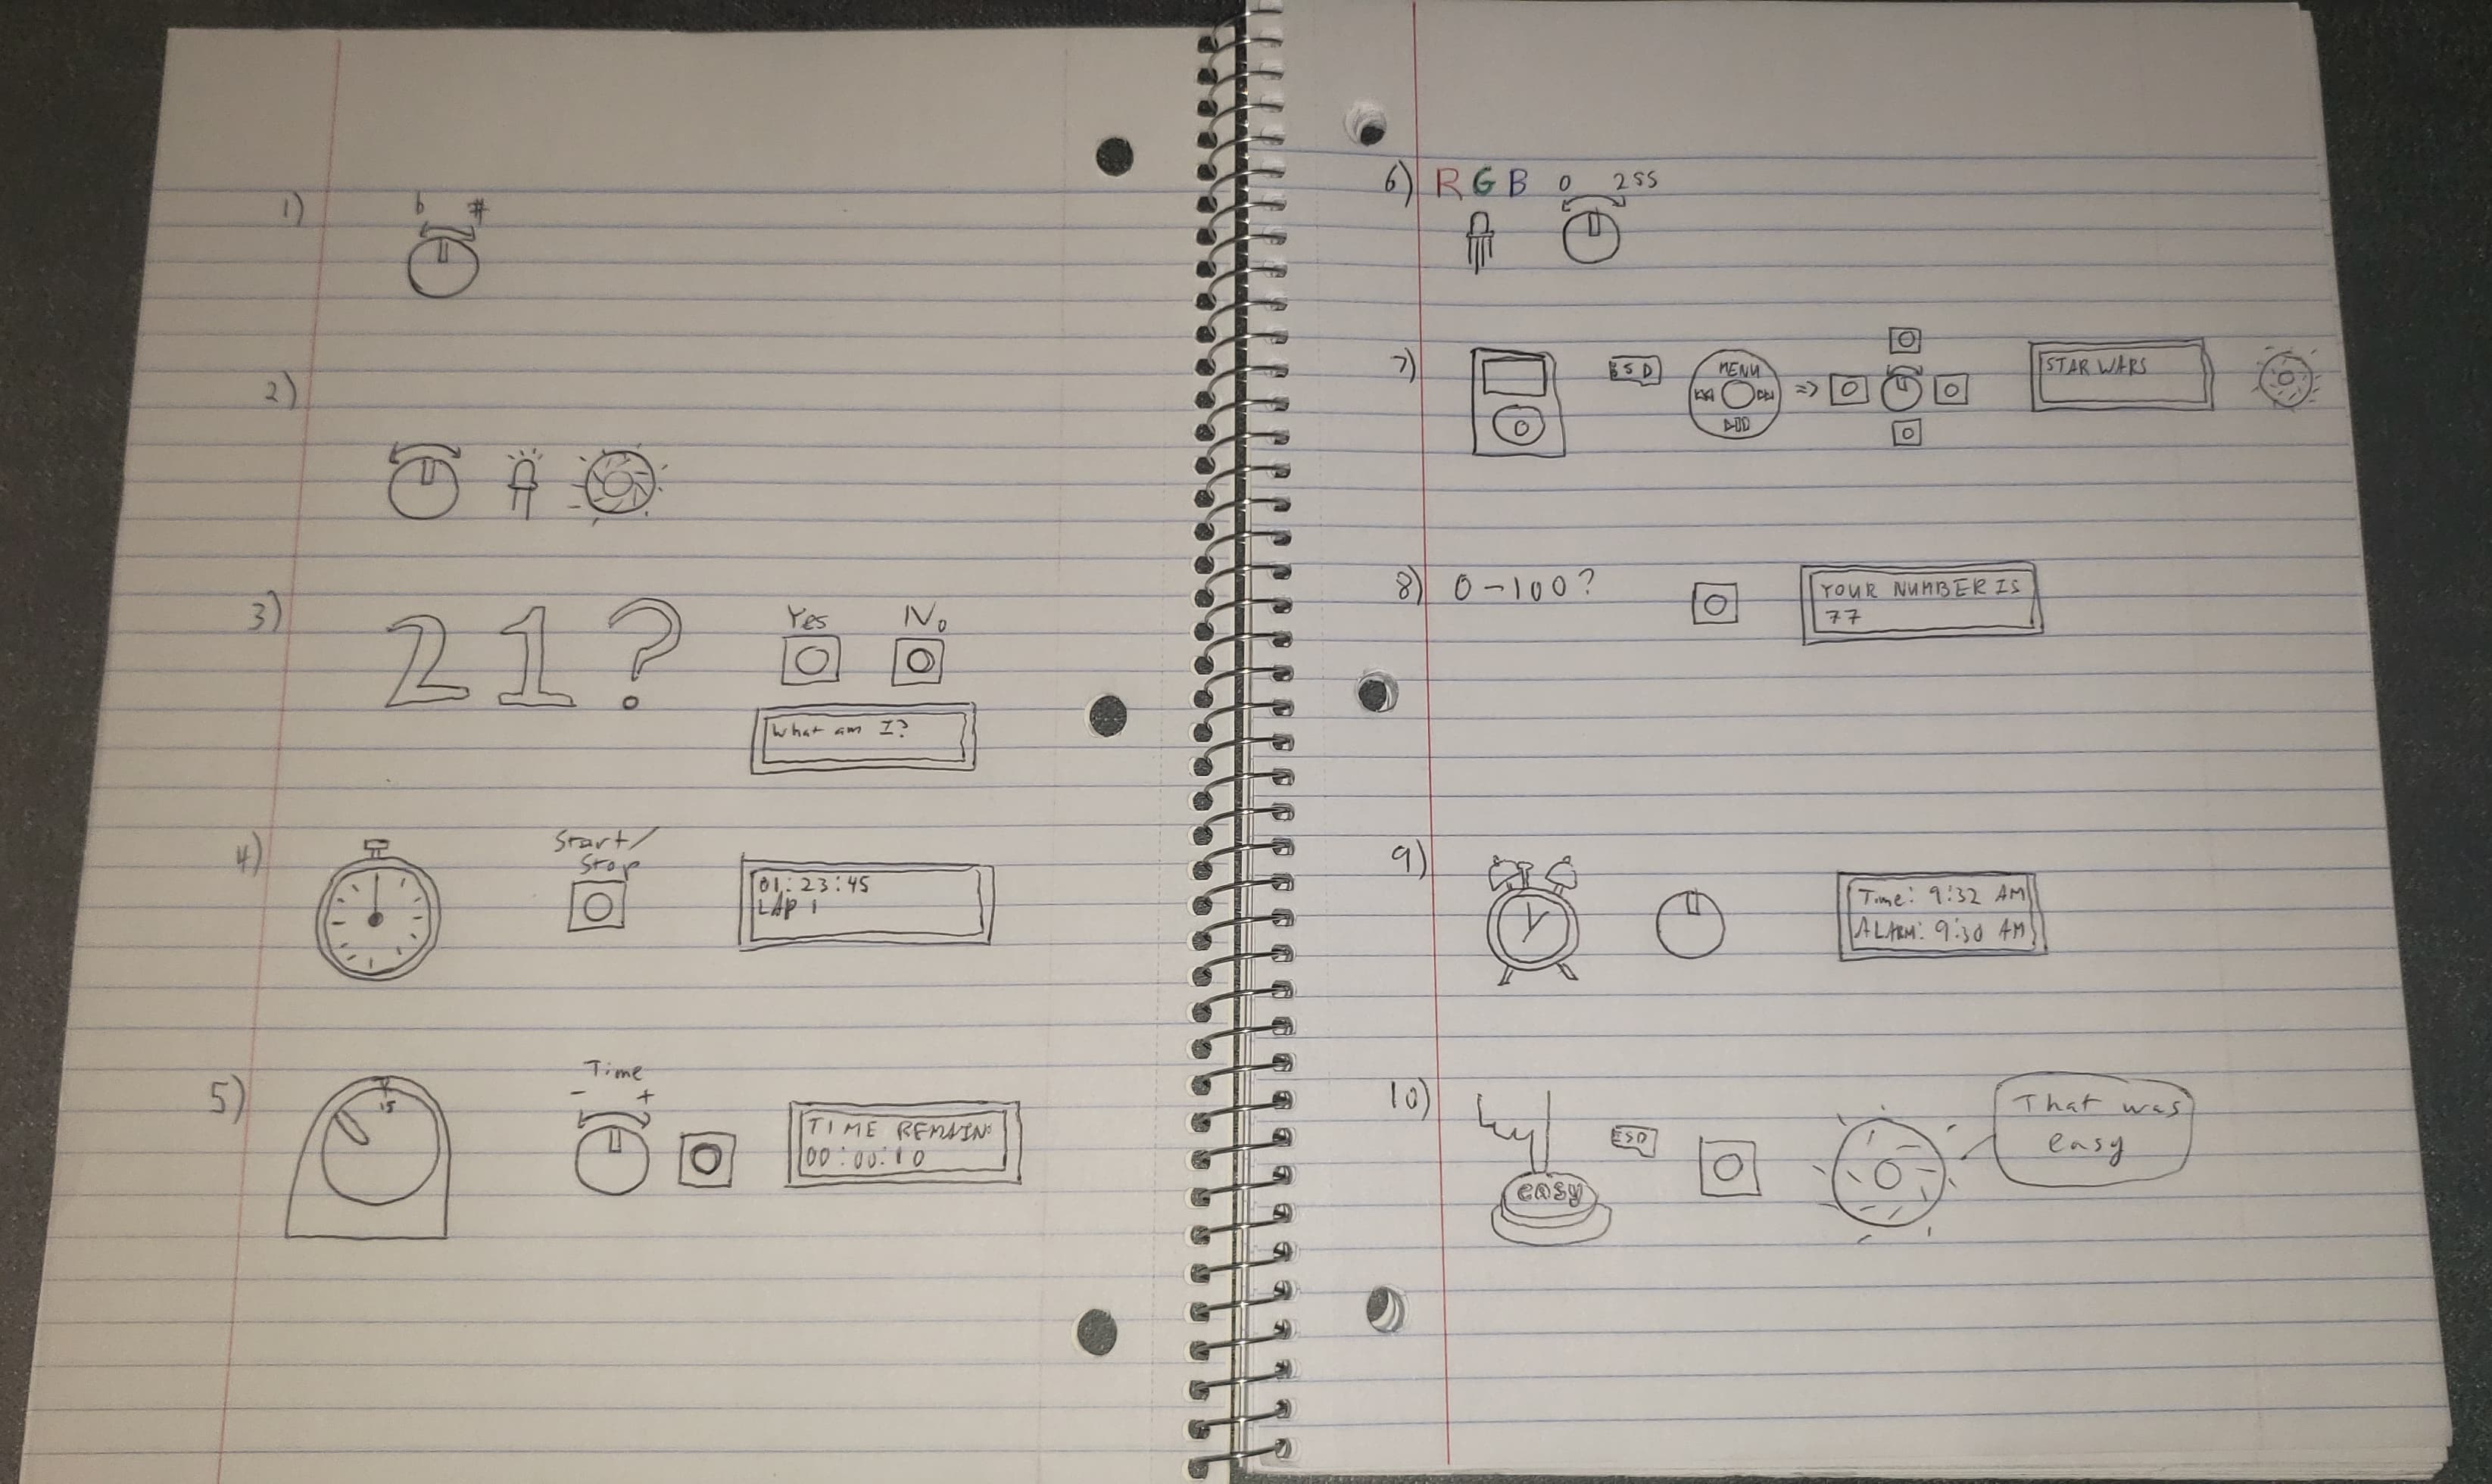 1)
b #
2)
3) 21?
Yes No
What am I?
4)
Start/
Stop
01:23:45
LAP 1
5)
15
Time
- +
TIME REMAIN:
00:00:10
6) RGB 0 255
7)
SD
MENU
=>
STAR WARS
8) 0-100?
YOUR NUMBER IS
77
9)
Time: 9:32 AM
ALARM: 9:30 AM
10)
easy
SD
That was
easy